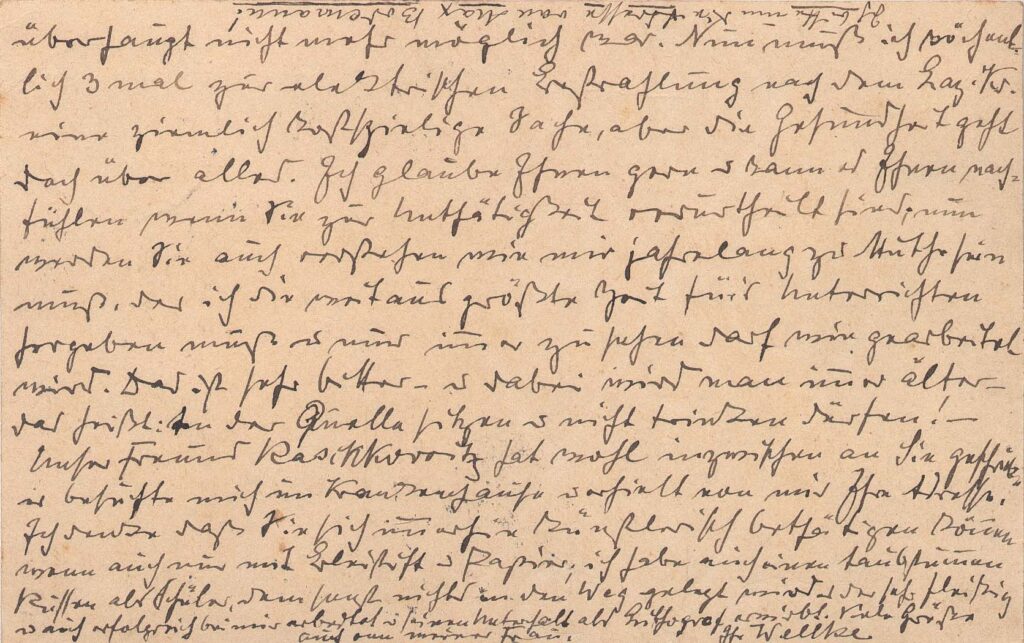 Ich bitte um die Adresse von Max Beckmann!
überhaupt nicht mehr möglich war. Nun muß ich wöchent-
lich 3 mal zur elektrischen Bestrahlung nach dem Laz. Kr.
eine ziemlich kostspielige Sache, aber die Gesundheit geht
doch über alles. Ich glaube Ihnen gern u kann es Ihnen nach=
fühlen wenn Sie zur Unthätigkeit verurtheilt sind, nun
werden Sie auch verstehen wie mir jahrelang zu Muthe sein
muß, der ich die weitaus größte Zeit für's Unterrichten
hergeben muß u nur immer zu sehen darf wie gearbeitet
wird. Das ist sehr bitter – u dabei wird man immer älter –
das heißt: an der Quelle sitzen u nicht trinken dürfen! –
Unser Freund hat wohl inzwischen an Sie geschrieben
er besuchte mich im Krankenhause u erhielt von mir Ihre Adresse.
Ich denke daß Sie sich immerhin künstlerisch bethätigen können
wenn auch nur mit Bleistift u Papier; ich habe auch einen taubstummen
Russen als Schüler, dem sonst nichts in den Weg gelegt wird u der sehr fleißig
u auch erfolgreich bei mir arbeitet u seinen Unterhalt als Lithograf erwirbt. Viele Grüße
auch von meiner Frau. Ihr